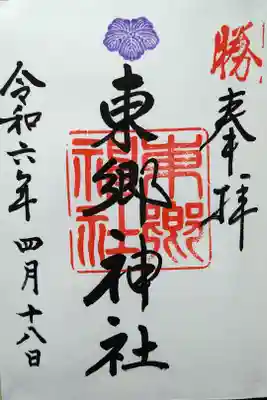 勝
奉拝
東郷神社
東郷神社
令和六年 四月十八日